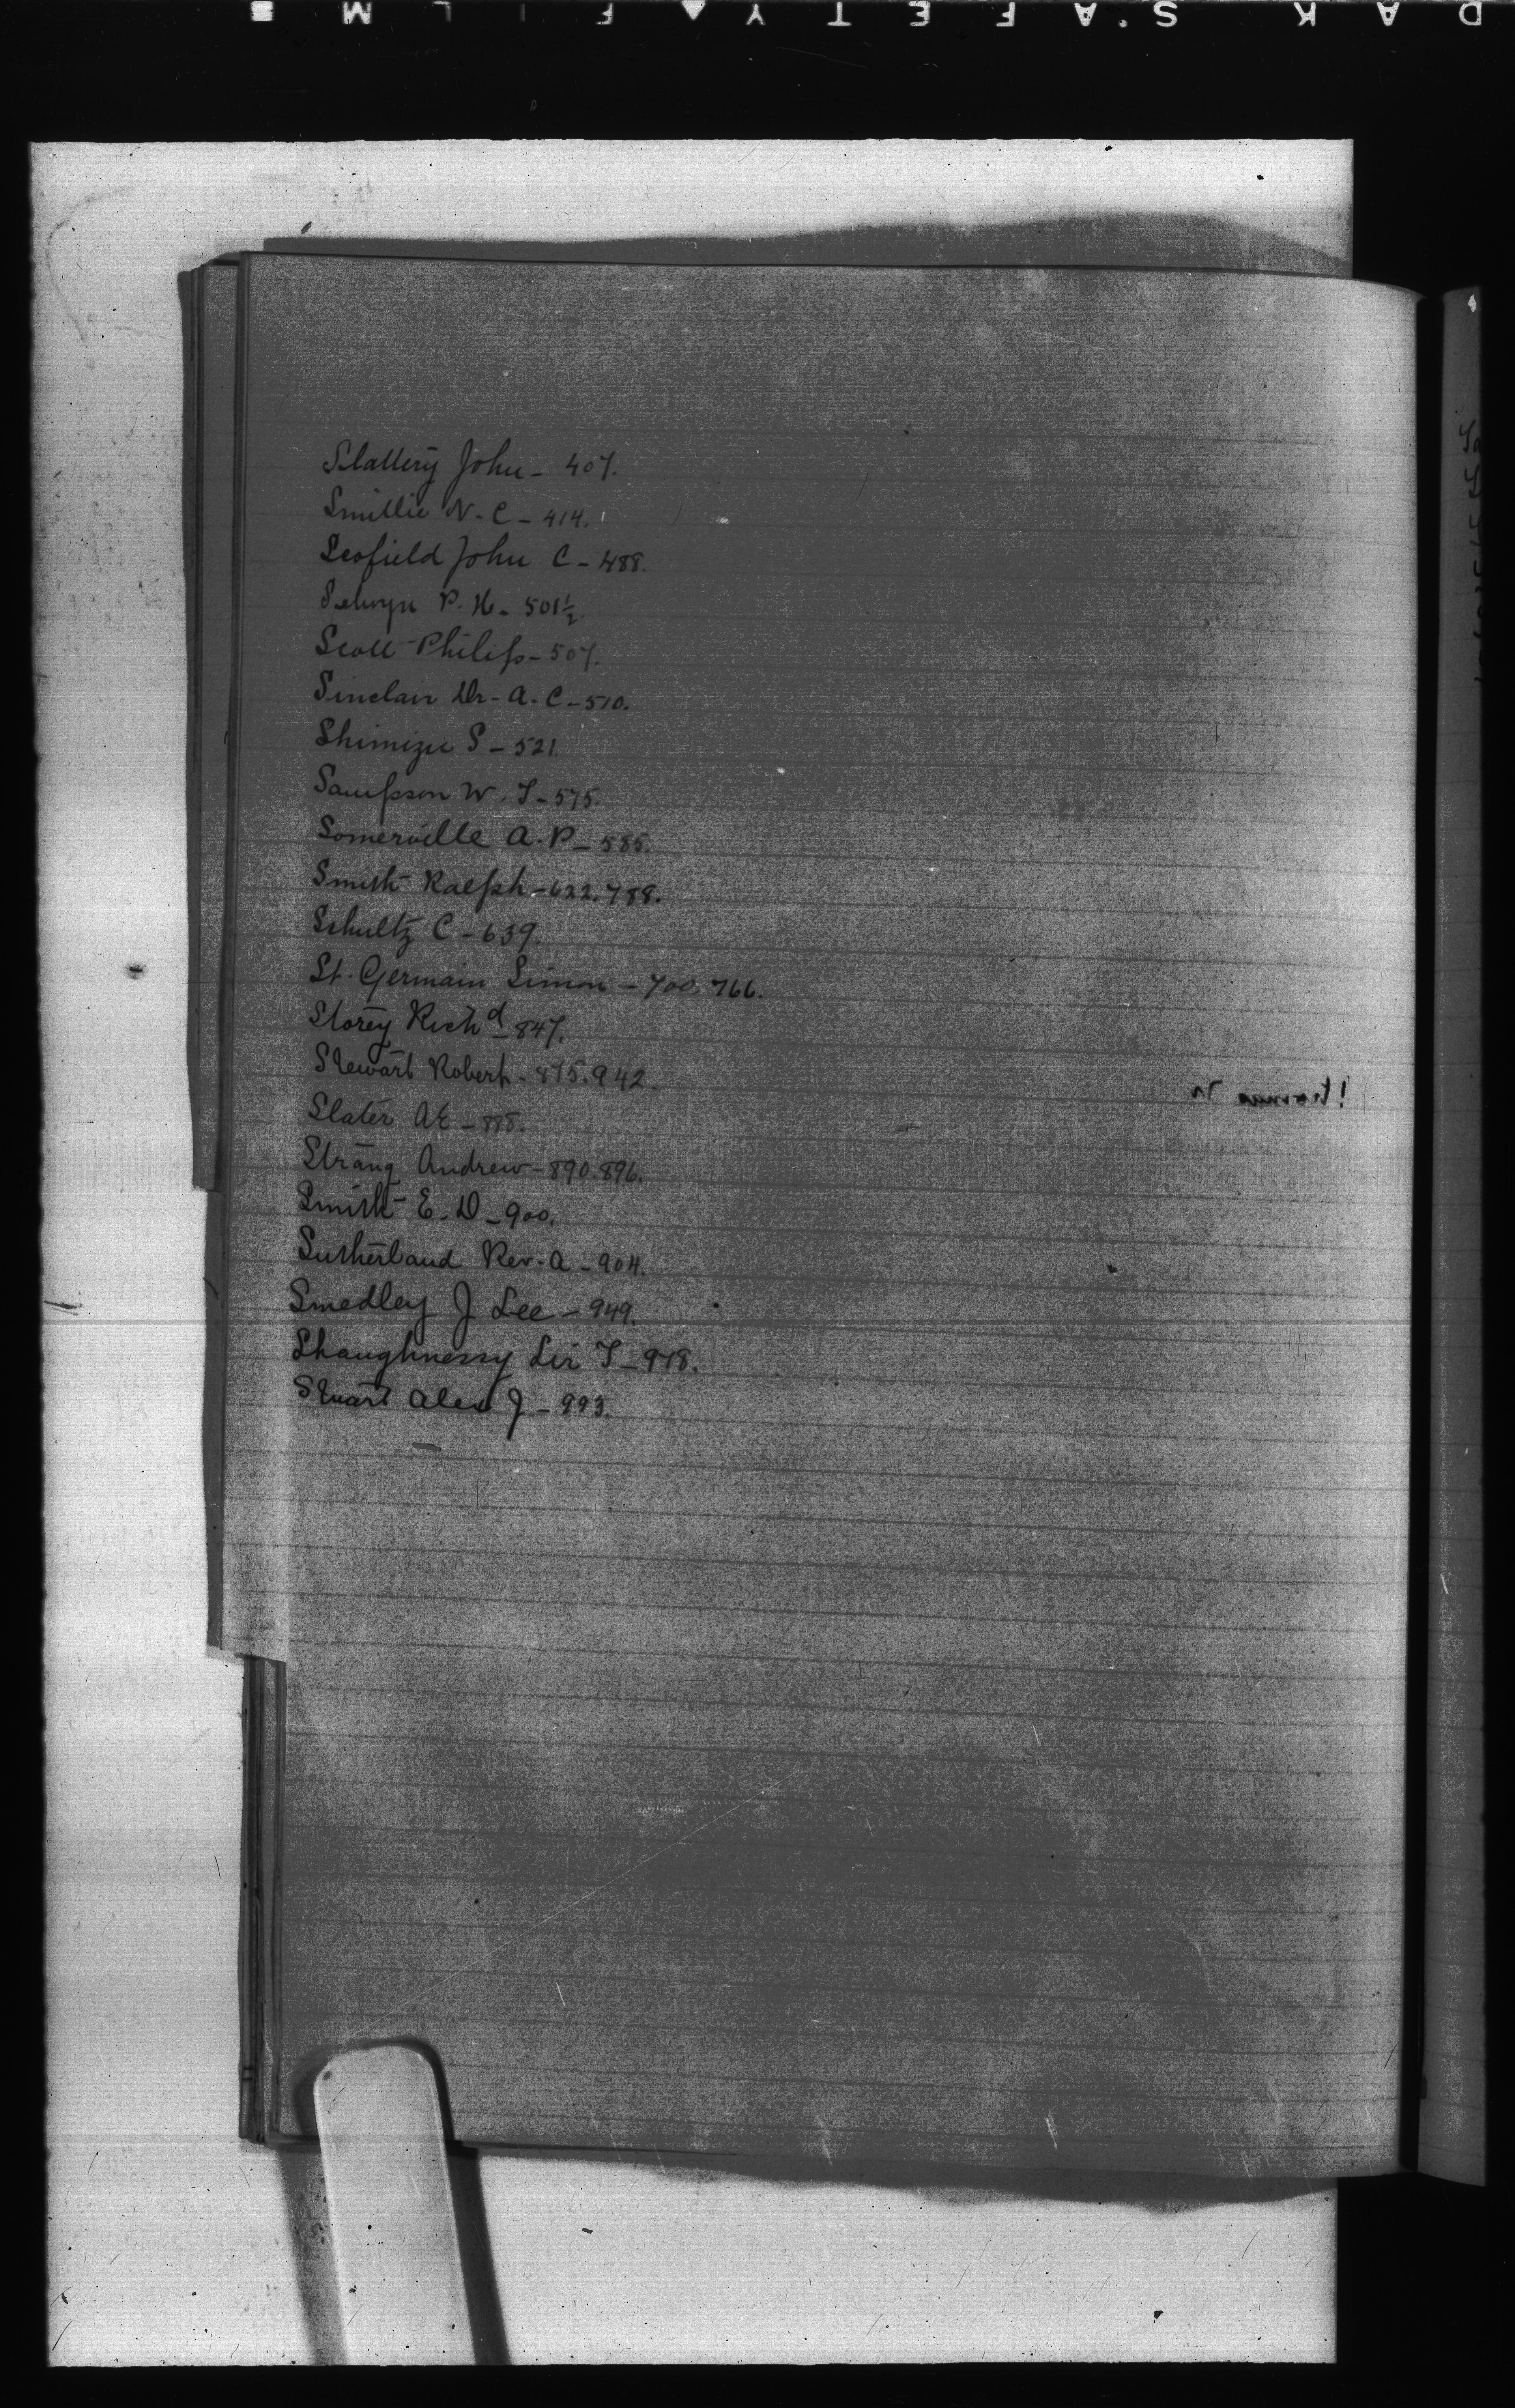 Slattery John - 407.
Smillie N. C - 414.
Scofield John C - 488.
Selwyn P. H. - 501½
Scott Philip - 507.
Sinclair Dr. A. C - 510.
Shimizu S - 521.
Sampson W. T - 575.
Somerville A. P - 585.
Smith Ralph - 622. 788.
Schultz C - 639.
St. Germain Simon - 700. 766.
Storey Richd - 847.
Stewart Robert - 875. 942.
Slater A E - 888.
Strang Andrew - 890. 896.
Smith E. D - 900.
Sutherland Rev. A - 904.
Smedley J Lee - 949.
Shaughnessy Sir T - 978.
Stuart Alex J - 993.